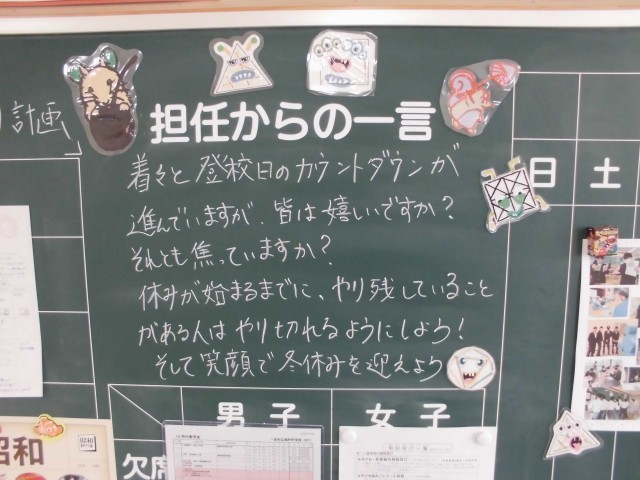 計画
担任からの一言
着々と登校日のカウントダウンが
進んでいますが、皆は嬉しいですか?
それとも焦っていますか?
休みが始まるまでに、やり残していること
がある人はやり切れるようにしよう!
そして笑顔で冬休みを迎えよう
日 土
男子 女子
欠席
昭和